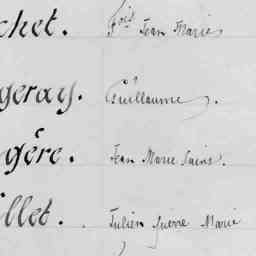 chet. Fois Jean Marie
geray. Guillaume.
gère. Jean Marie
illet. Julien Pierre Marie